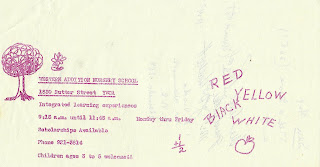 WESTERN ADDITION NURSERY SCHOOL
1830 Sutter Street YWCA
Integrated learning experiences
9:15 a.m. until 11:45 a.m. Monday thru Friday
Scholarships Available
Phone 921-3814
Children ages 3 to 5 welcomed!
RED
YELLOW
BlACK
WHITE
1/2